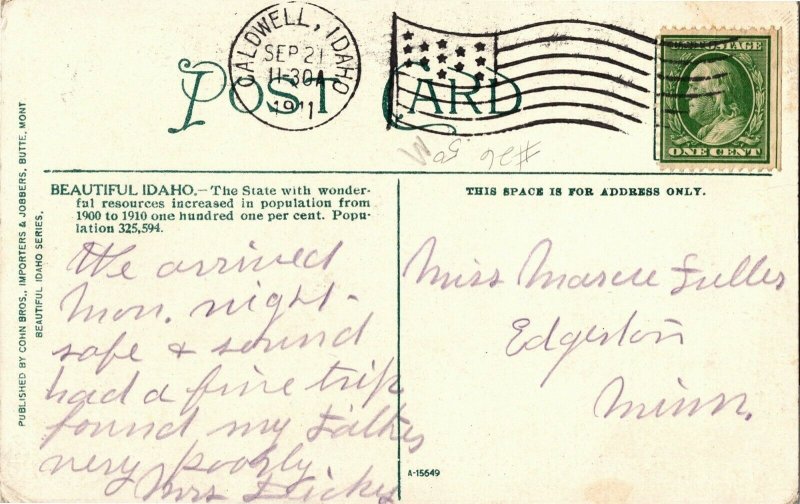 CALDWELL, IDAHO
SEP 21
11-30A
1911
POST CARD
U.S. POSTAGE
ONE CENT
BEAUTIFUL IDAHO.—The State with wonder-
ful resources increased in population from
1900 to 1910 one hundred one per cent. Popu-
lation 325,594.
We arrived
Mon. night -
safe & sound
had a fine trip
found my Father
very poorly
Mrs Dickey
THIS SPACE IS FOR ADDRESS ONLY.
Miss Fuller
Edgerton
Minn.
A-15649
PUBLISHED BY COHN BROS., IMPORTERS & JOBBERS, BUTTE, MONT
BEAUTIFUL IDAHO SERIES.